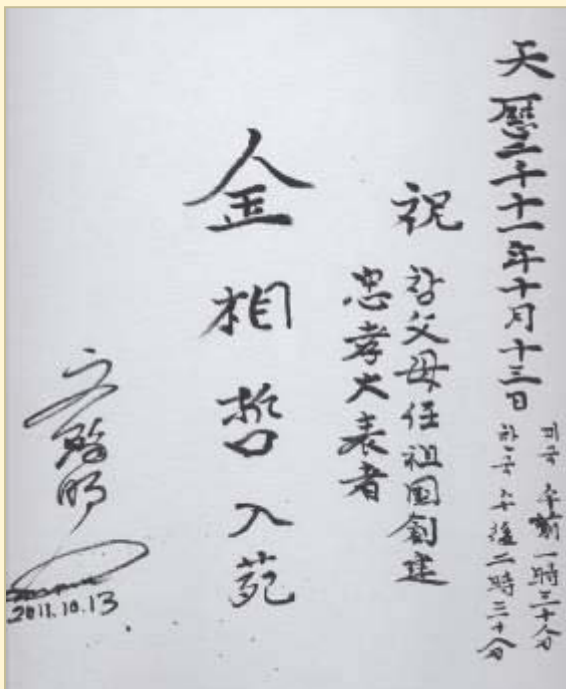 天曆二千十一年十月十三日
미국 午前 一時 三十分
한국 午後 二時 三十分
祝 참父母任祖國創建
忠孝大表者
金相哲入苑
文鮮明
2011.10.13